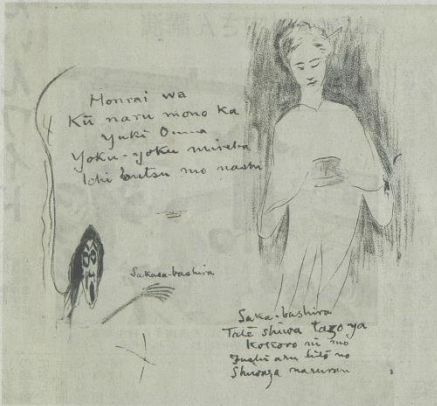 Honrai wa
Kū naru mono ka
Yuki Onna
Yoku-yoku mireba
Ichi butsu mo nashi
Sakasa-bashira
Saka-bashira
Tatè shiwa tazo ya
Kokoro ni mo
Fushi aru hito no
Shiwaza naruran